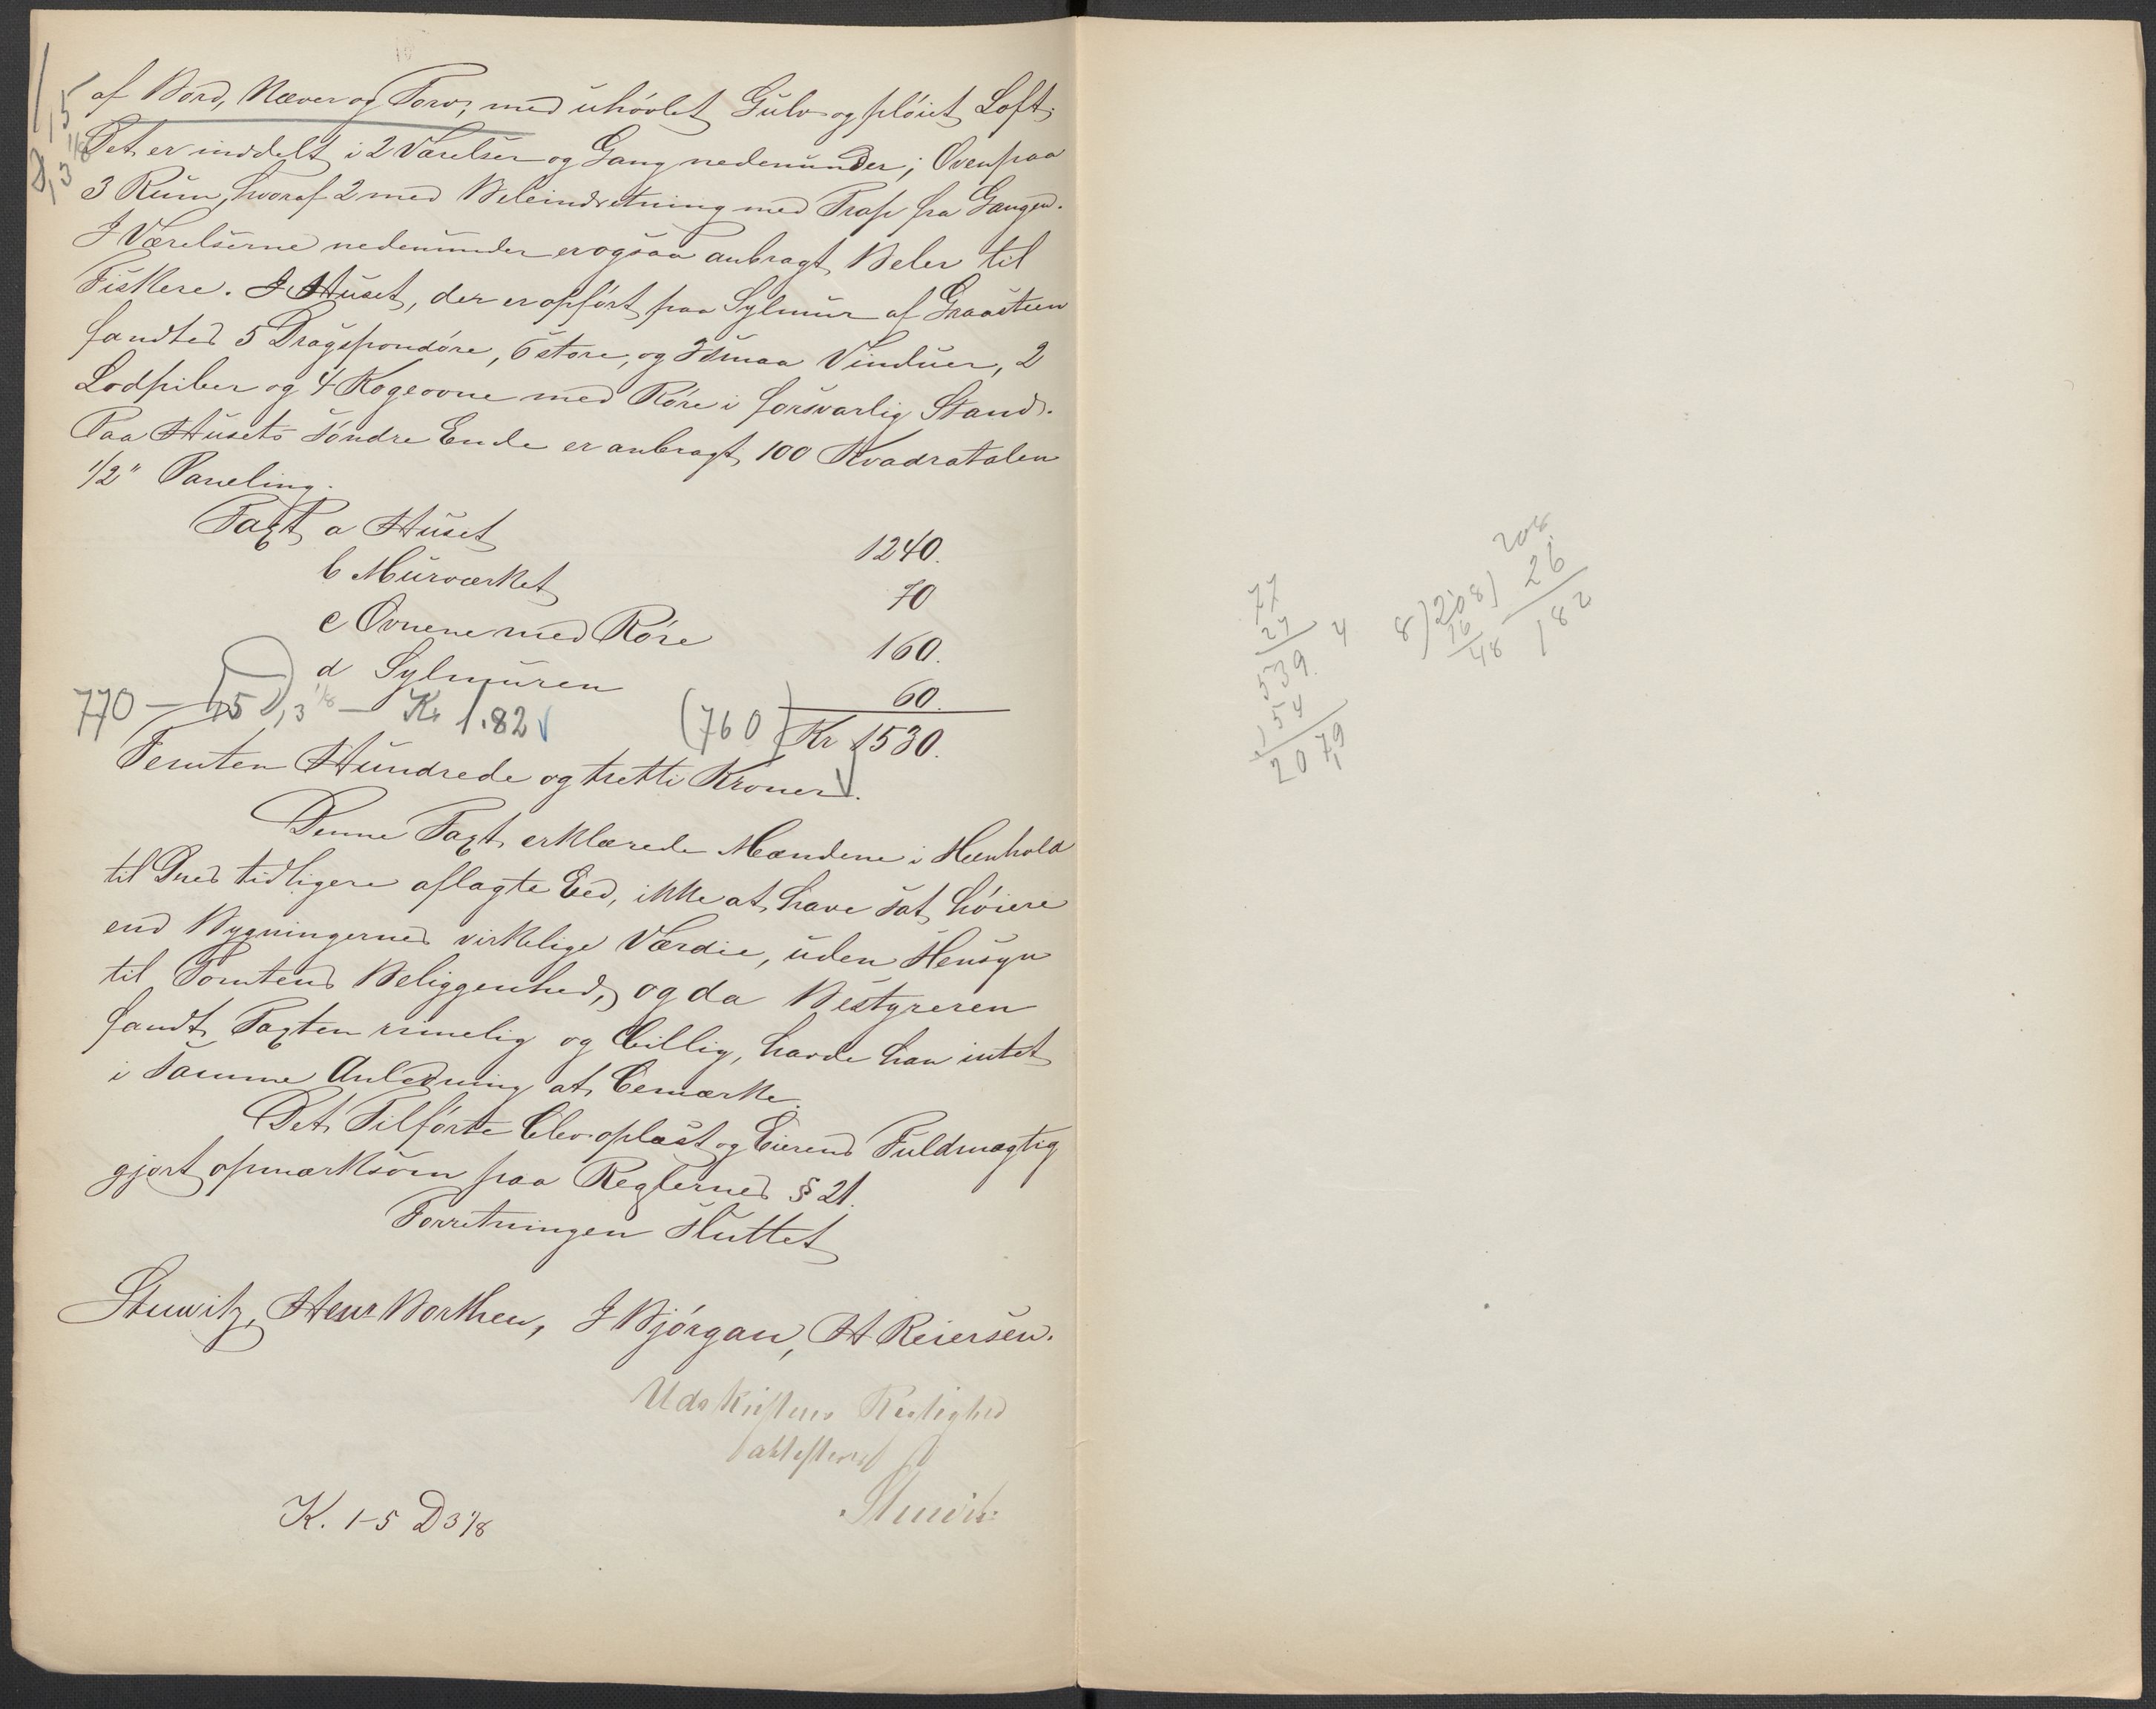 af Bord, Næver og Torv, med uhövlet Gulv og plöiet Loft.
Det er inddelt i 2 Værelser og Gang nedenunder; Ovenpaa
3 Rum, hvoraf 2 med Beleindretning med Trap fra Gangen.
I Værelserne nedenunder er ogsaa anbragt Beler til
Fiskere. I Huset, der er opfört paa Sylmur af Graasteen
fandtes 5 Dragspondöre, 6 store, og 2 smaa Vinduer, 2
Lodpiber og 4 Kogeovne med Röre i forsvarlig Stand.
Paa Husets söndre Ende er anbragt 100 Kvadratalen
1/2" Paneling.
Taxt a Huset 1240.
b Murværket 70
c Ovnene med Röre 160.
d Sylmuren 60.
770 — 15 D, 3 1/8 — Kr 1.82 (760) Kr 1530.
Femten Hundrede og tretti Kroner.
Denne Taxt erklærede Mændene i Henhold
til Deres tidligere aflagte Eed, ikke at have sat höiere
end Bygningernes virkelige Værdie, uden Hensyn
til Tomtens Beliggenhed, og da Bestyreren
fandt Taxten rimelig og billig, havde han intet
i samme Anledning at bemærke.
Det Tilförte blev oplæst og Eierens Fuldmægtig
gjort opmærksom paa Reglernes § 21.
Forretningen sluttet
Stuwitz, Henr Borthen, J Björgan, H Reiersen.
Udskriftens Rigtighed
attesteres
Stuwitz
K. 1-5 D 3 1/8
77
27
539 4
154
2079
208
26
182
8)208)
16
48